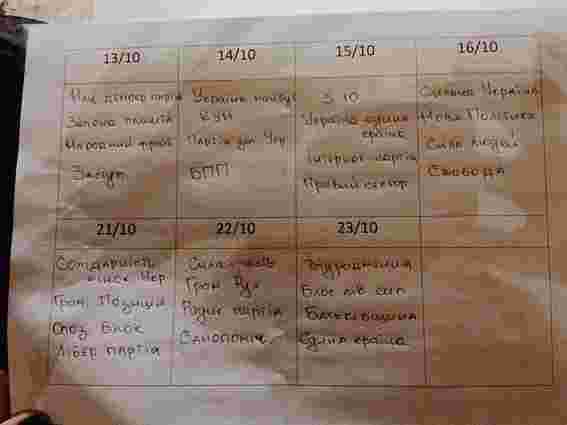 13/10
14/10
15/10
16/10
Нац демокр партія
Зелена планета
Народний фронт
Заступ
Україна майбут
КУН
Партія
БПП
5.10
Україна єдина
країна
Інтернет партія
Правий сектор
Сильна Україна
Нова Політика
Сила людей
Свобода
21/10
22/10
23/10
Солідарність
жінок Укр
Гром. Позиція
Опоз. Блок
Лібер партія
Сила
Гром Рух
Радик партія
Самопоміч
Відродження
Блок лів сил
Батьківщина
Єдина країна